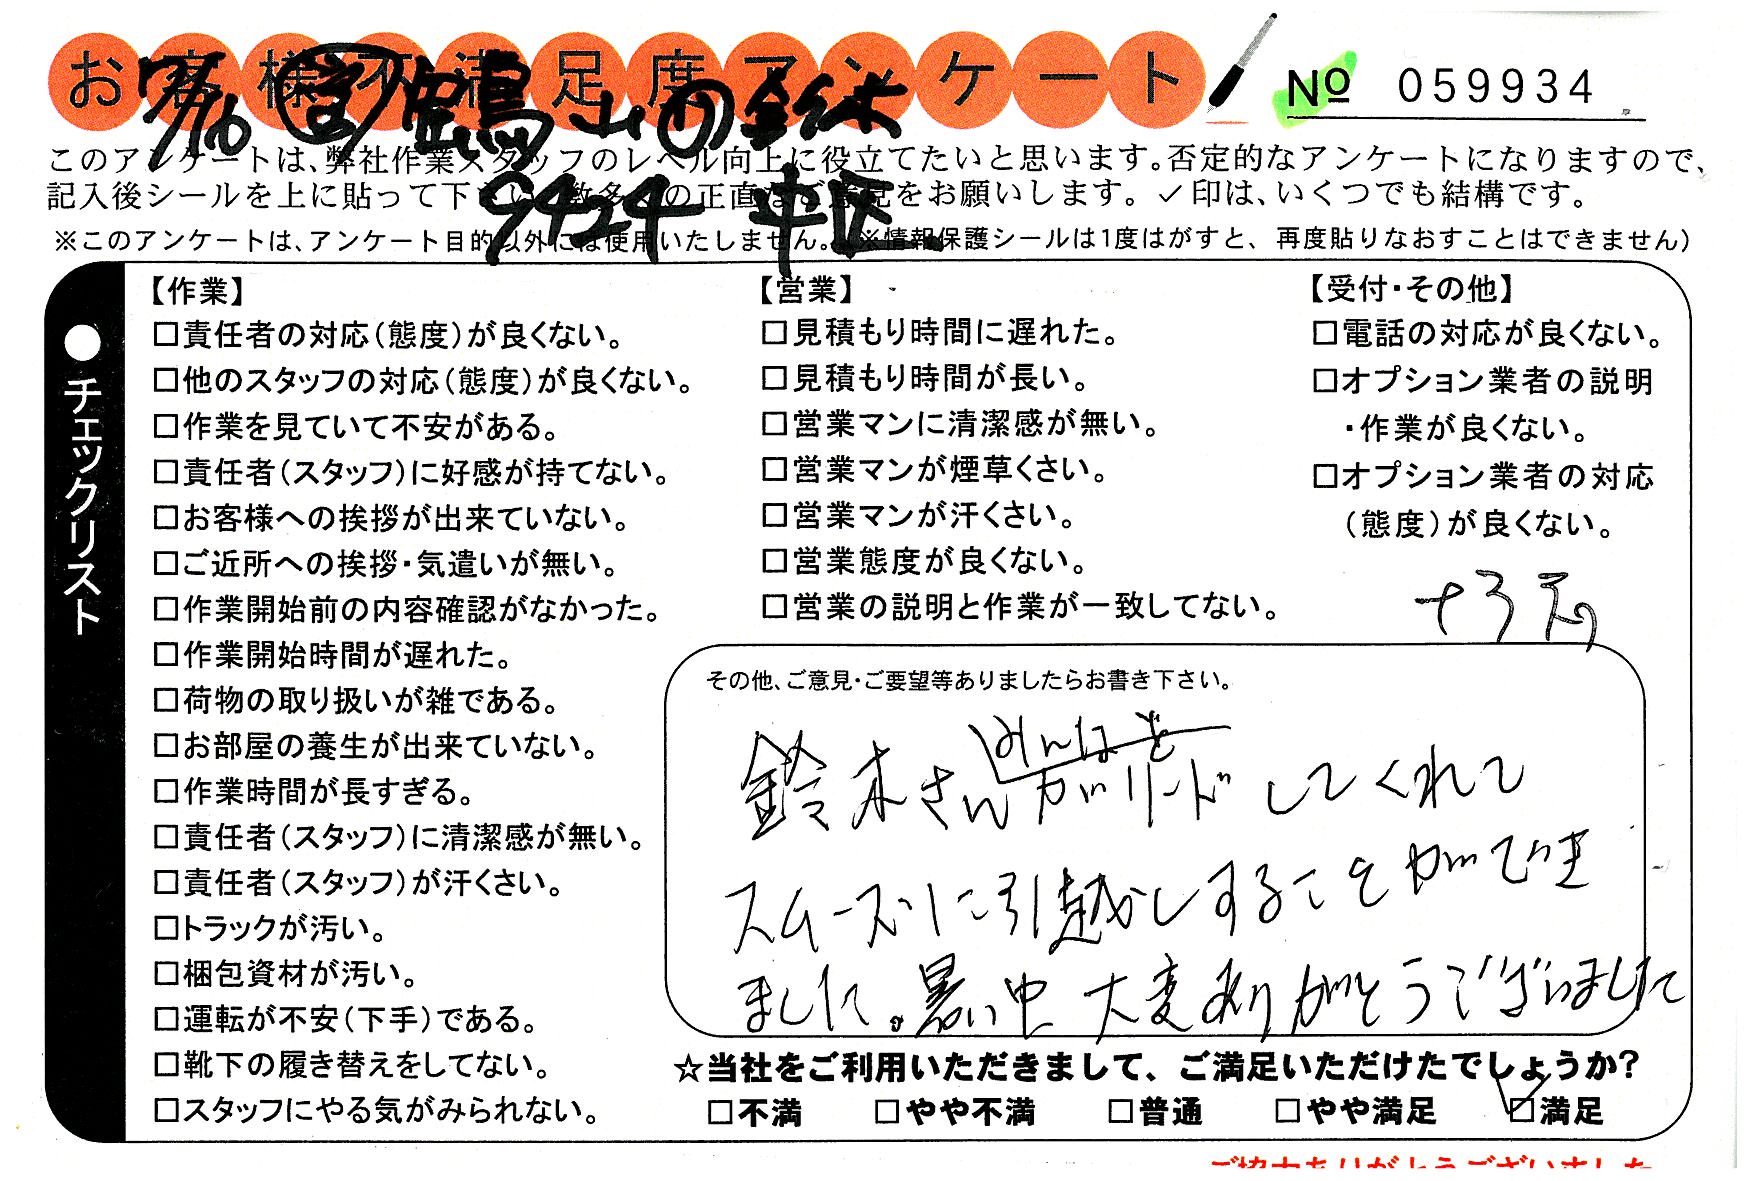 お客様不満足度アンケート
№ 059934
7/16 山の鈴木
9424 平区
このアンケートは、弊社作業スタッフのレベル向上に役立てたいと思います。否定的なアンケートになりますので、
記入後シールを上に貼って下さい。数多くの正直なご意見をお願いします。✓印は、いくつでも結構です。
※このアンケートは、アンケート目的以外には使用いたしません。(※情報保護シールは1度はがすと、再度貼りなおすことはできません)
●チェックリスト
【作業】
□責任者の対応(態度)が良くない。
□他のスタッフの対応(態度)が良くない。
□作業を見ていて不安がある。
□責任者(スタッフ)に好感が持てない。
□お客様への挨拶が出来ていない。
□ご近所への挨拶・気遣いが無い。
□作業開始前の内容確認がなかった。
□作業開始時間が遅れた。
□荷物の取り扱いが雑である。
□お部屋の養生が出来ていない。
□作業時間が長すぎる。
□責任者(スタッフ)に清潔感が無い。
□責任者(スタッフ)が汗くさい。
□トラックが汚い。
□梱包資材が汚い。
□運転が不安(下手)である。
□靴下の履き替えをしてない。
□スタッフにやる気がみられない。
【営業】
□見積もり時間に遅れた。
□見積もり時間が長い。
□営業マンに清潔感が無い。
□営業マンが煙草くさい。
□営業マンが汗くさい。
□営業態度が良くない。
□営業の説明と作業が一致してない。
【受付・その他】
□電話の対応が良くない。
□オプション業者の説明
・作業が良くない。
□オプション業者の対応
(態度)が良くない。
その他、ご意見・ご要望等ありましたらお書き下さい。
みんなを
鈴木さんがリードしてくれて
スムーズに引越しすることができ
ました。暑い中 大変ありがとうございました
☆当社をご利用いただきまして、ご満足いただけたでしょうか?
□不満 □やや不満 □普通 □やや満足 ☑満足
ご協力ありがとうございました